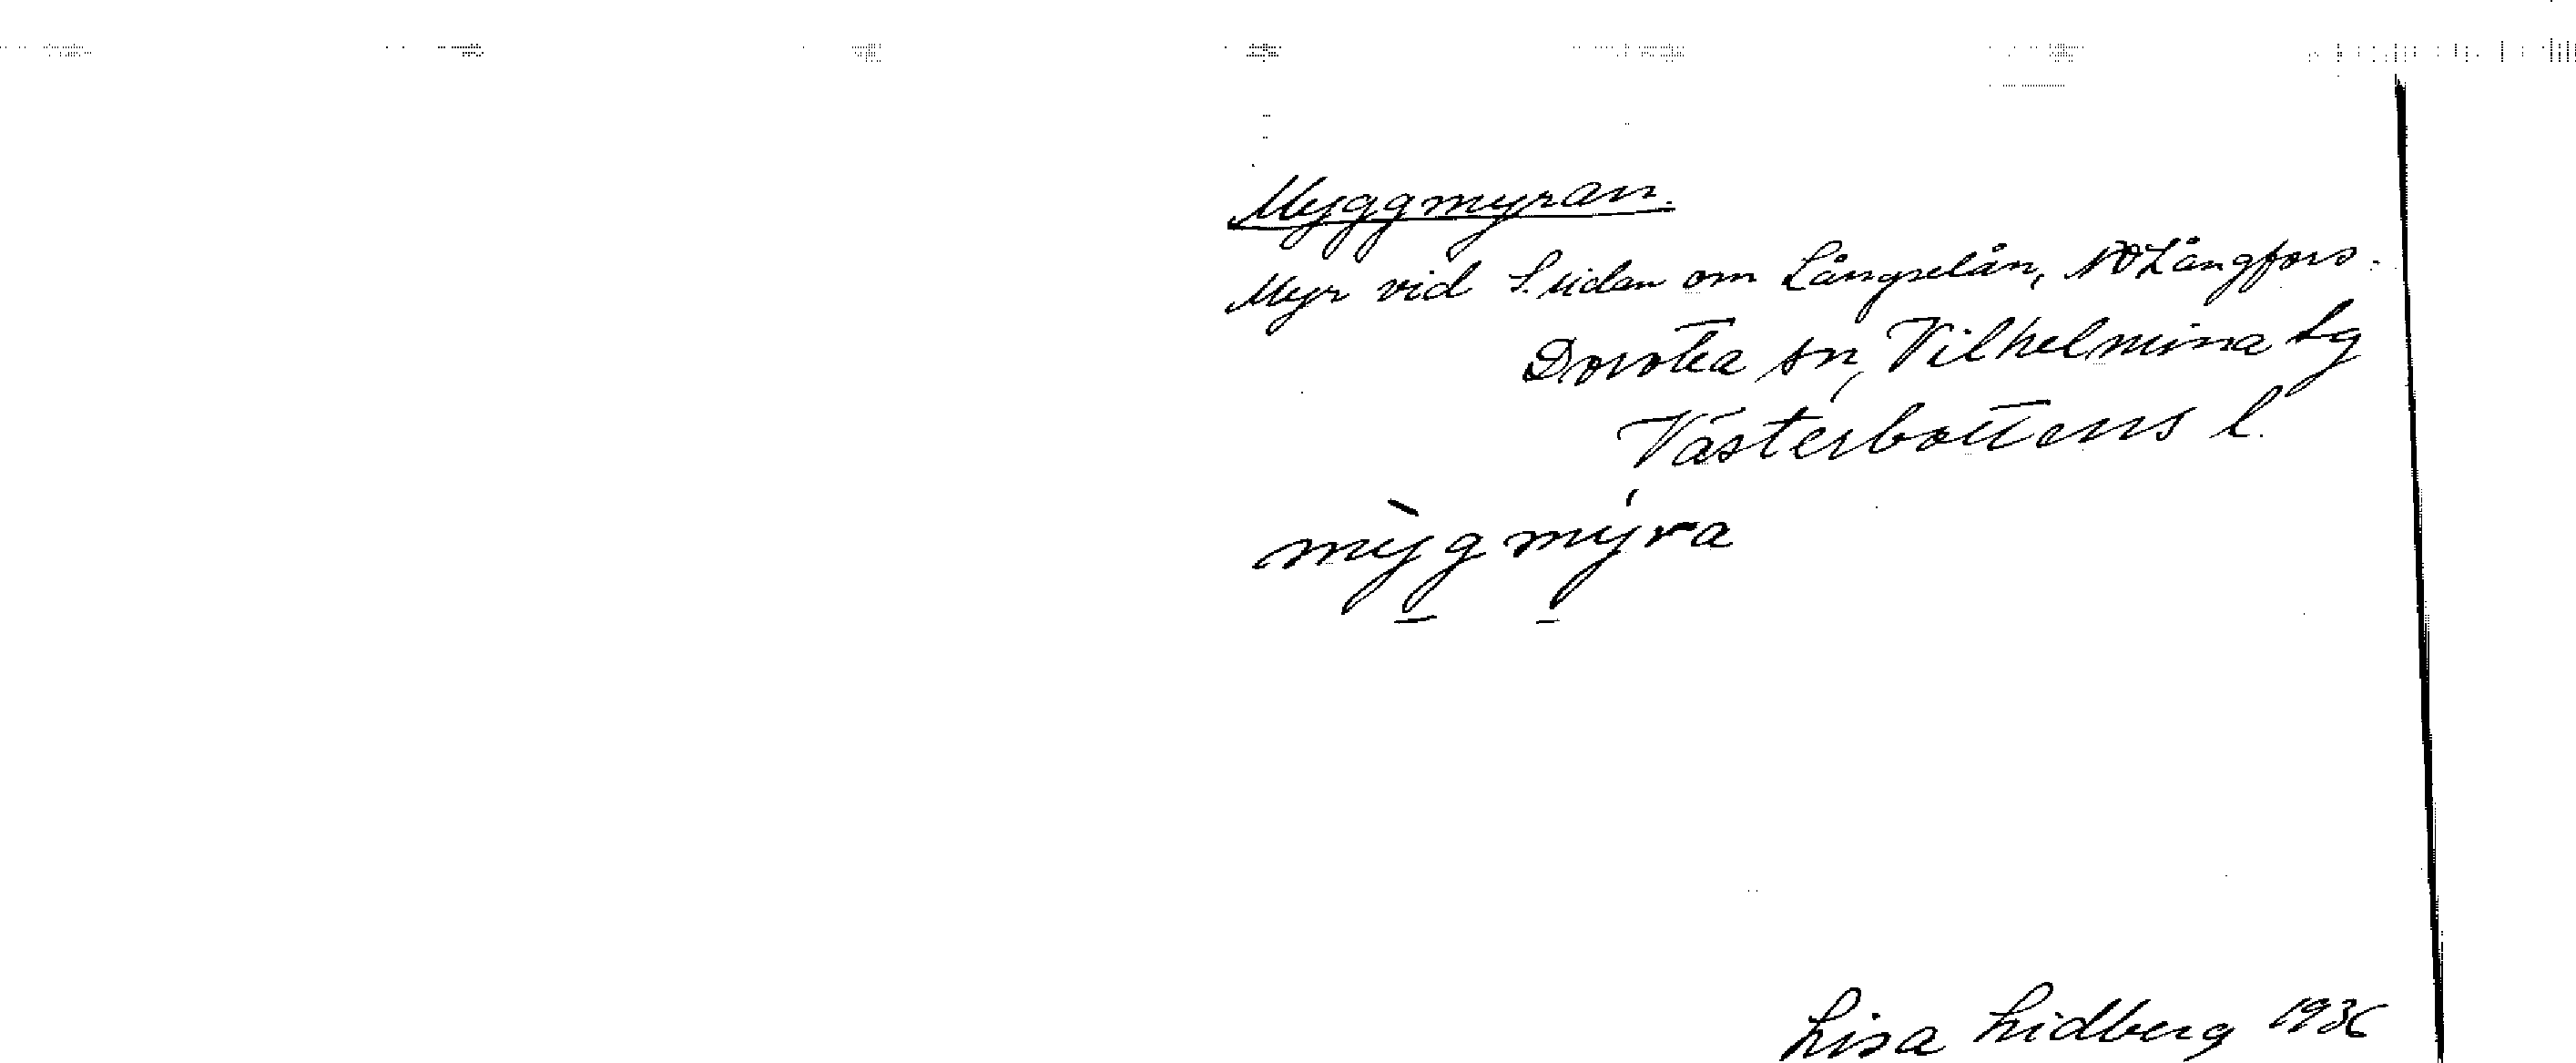 Myggmyran.
Myr vid S. sidan om Långselån, NO Långfors.
Dorotea sn, Vilhelmina tg
Västerbottens l.
mỳgmýra
Lisa Lidberg 1936